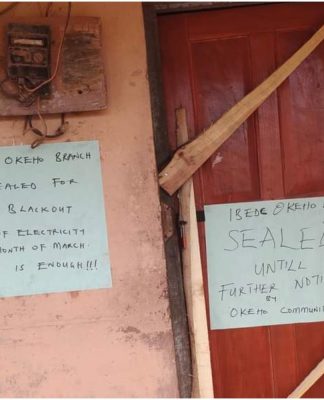 OKEHO BRANCH
EALED FOR
BLACKOUT
OF ELECTRICITY
MONTH OF MARCH.
IS ENOUGH!!!
IBEDC OKEHO
SEALED
UNTILL
FURTHER NOTI
BY
OKEHO COMMUNI